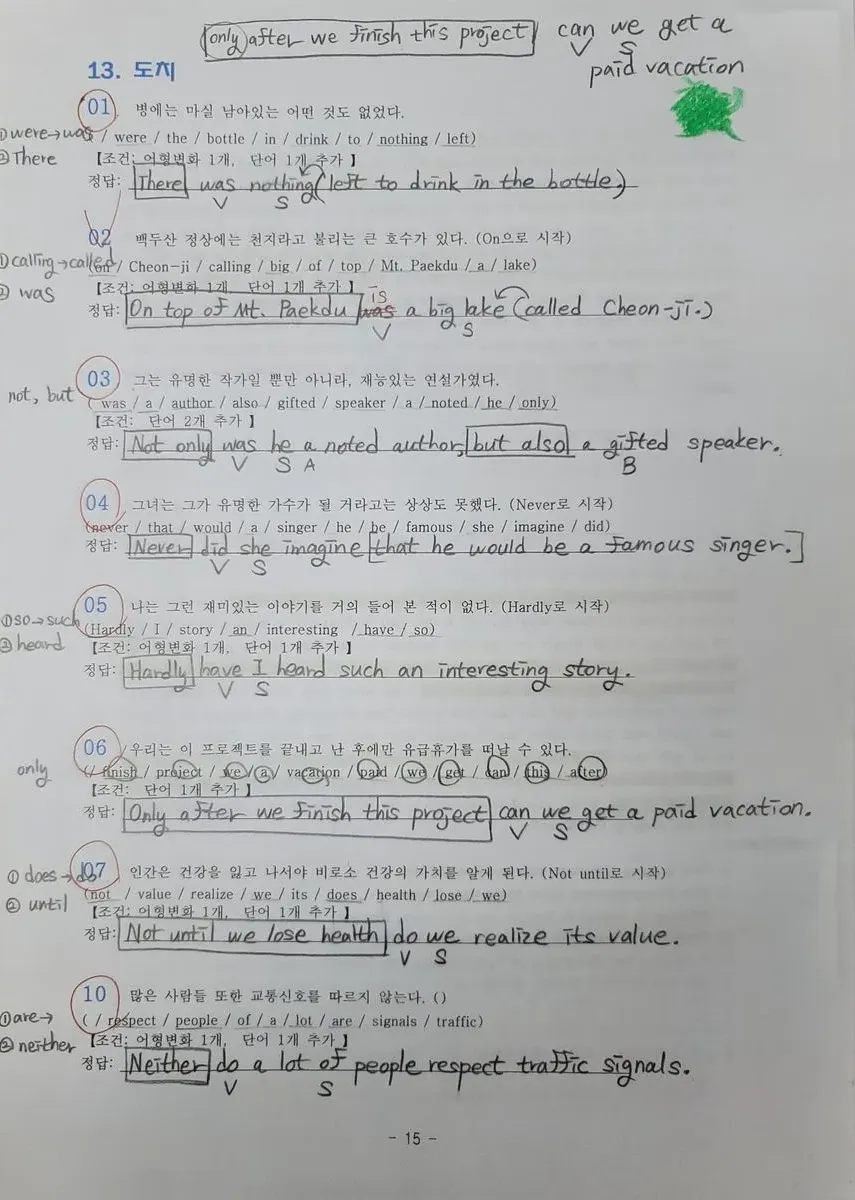 only after we finish this project can we get a
V S
paid vacation
13. 도치
01 병에는 마실 남아있는 어떤 것도 없었다.
① were → was / were / the / bottle / in / drink / to / nothing / left)
② There 【조건: 어형변화 1개, 단어 1개 추가 】
정답: There was nothing (left to drink in the bottle.)
V S
02 백두산 정상에는 천지라고 불리는 큰 호수가 있다. (On으로 시작)
① calling → called (on / Cheon-ji / calling / big / of / top / Mt. Paekdu / a / lake)
② was 【조건: 어형변화 1개 단어 1개 추가 】
is
정답: On top of Mt. Paekdu was a big lake (called Cheon-ji.)
V S
03 그는 유명한 작가일 뿐만 아니라, 재능있는 연설가였다.
not, but ( was / a / author / also / gifted / speaker / a / noted / he / only)
【조건: 단어 2개 추가 】
정답: Not only was he a noted author, but also a gifted speaker.
V S A B
04 그녀는 그가 유명한 가수가 될 거라고는 상상도 못했다. (Never로 시작)
(never / that / would / a / singer / he / be / famous / she / imagine / did)
정답: Never did she imagine that he would be a famous singer.]
V S
05 나는 그런 재미있는 이야기를 거의 들어 본 적이 없다. (Hardly로 시작)
① so → such (Hardly / I / story / an / interesting / have / so)
② heard 【조건: 어형변화 1개, 단어 1개 추가 】
정답: Hardly have I heard such an interesting story.
V S
06 우리는 이 프로젝트를 끝내고 난 후에만 유급휴가를 떠날 수 있다.
only (/ finish / project / we / a / vacation / paid / we / get / can / this / after)
【조건: 단어 1개 추가 】
정답: Only after we finish this project can we get a paid vacation.
V S
07 인간은 건강을 잃고 나서야 비로소 건강의 가치를 알게 된다. (Not until로 시작)
① does → do (not / value / realize / we / its / does / health / lose / we)
② until 【조건: 어형변화 1개, 단어 1개 추가 】
정답: Not until we lose health do we realize its value.
V S
10 많은 사람들 또한 교통신호를 따르지 않는다. ()
① are → ( / respect / people / of / a / lot / are / signals / traffic)
② neither 【조건: 어형변화 1개, 단어 1개 추가 】
정답: Neither do a lot of people respect traffic signals.
V S
- 15 -